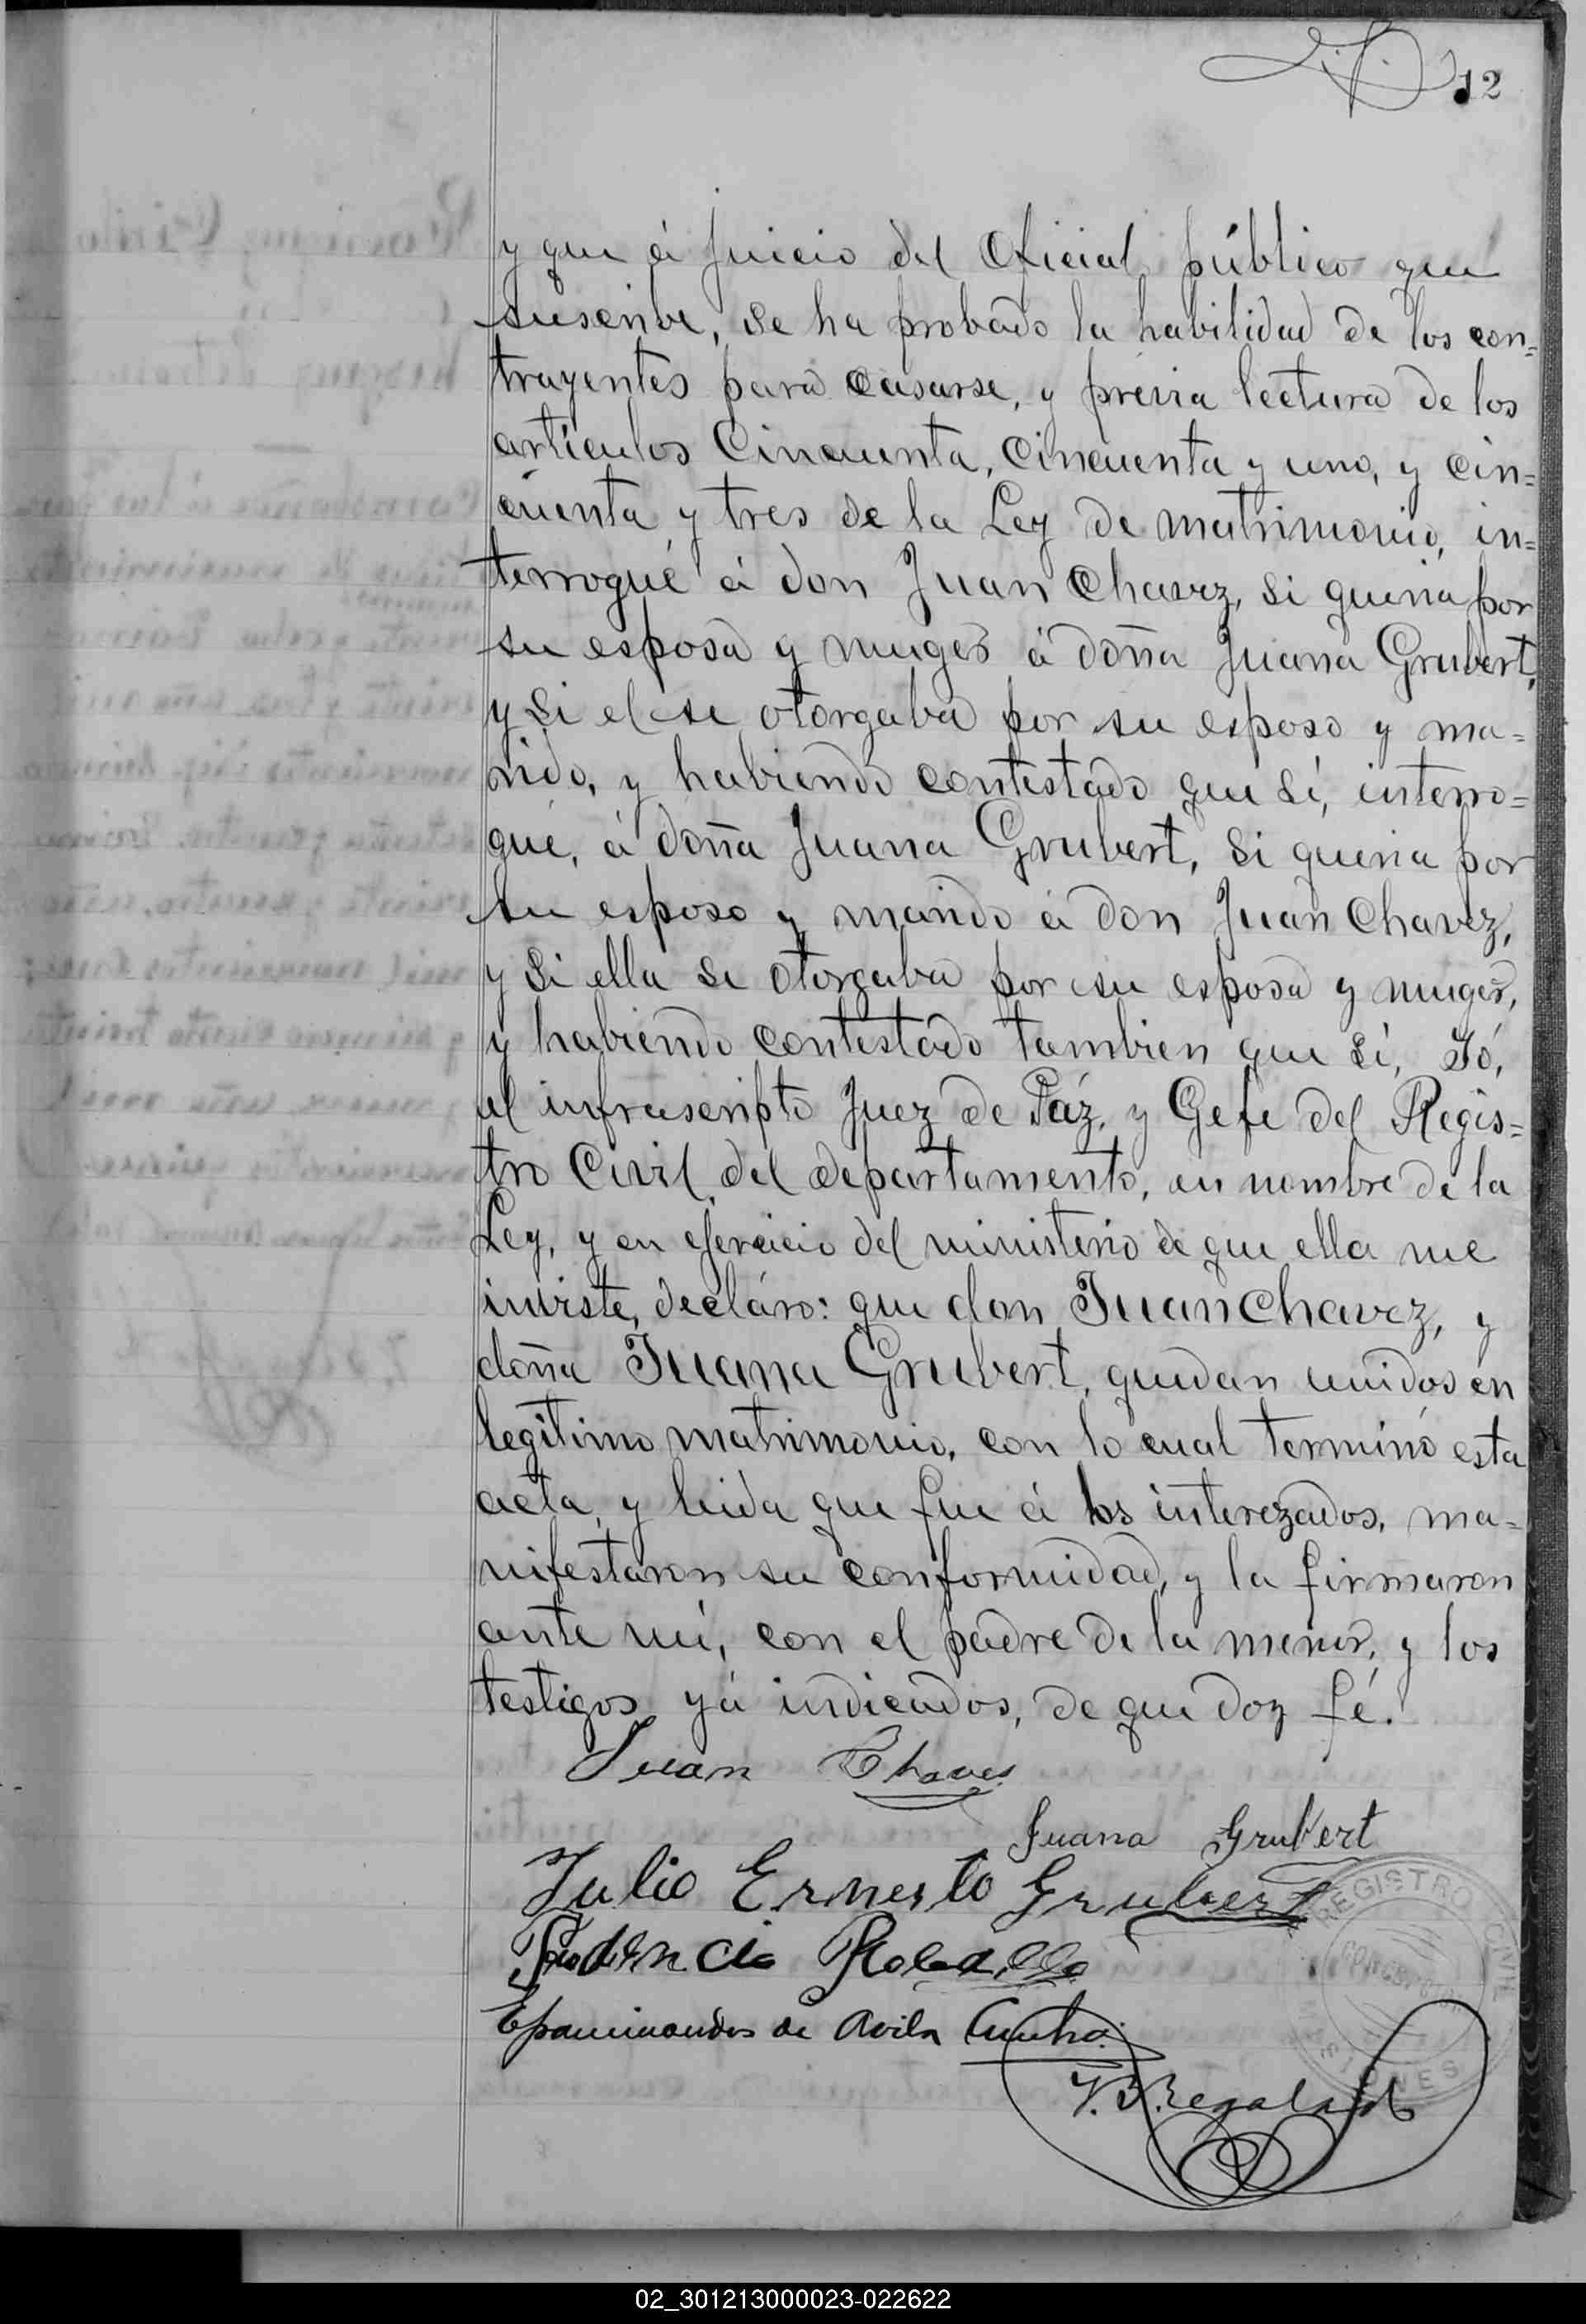 12
y que á juicio del Oficial público que
suscribe, se ha probado la habilidad de los con=
trayentes para casarse, y prévia lectura de los
artículos Cincuenta, cincuenta y uno, y cin=
cuenta y tres de la Ley de matrimonio, in=
terrogué á don Juan Chavez, si queria por
su esposa y muger á doña Juana Grubert,
y si el se otorgaba por su esposo y ma=
rido, y habiendo contestado que sí, interro=
gué, á doña Juana Grubert, si queria por
su esposo y marido á don Juan Chavez,
y si ella se otorgaba por su esposa y muger,
y habiendo contestado tambien que sí, Yó,
el infrascripto Juez de Páz, y Gefe del Regis=
tro Civil del departamento, en nombre de la
Ley, y en ejercicio del ministerio de que ella me
inviste, decláro: que don Juan Chavez, y
doña Juana Grubert, quedan unidos en
legítimo matrimonio, con lo cual terminó esta
acta, y leida que fue á los interezados, ma=
nifestaron su conformidad, y la firmaron
ante mí, con el padre de la menor, y los
testigos yá indicados, de que doy fé.
Juan Chaves
Juana Grubert
Julio Ernesto Grubert
Prudencio Robaldo
Epaminondas de Avila Cunha
REGISTRO CIVIL
MISIONES
02_301213000023-022622